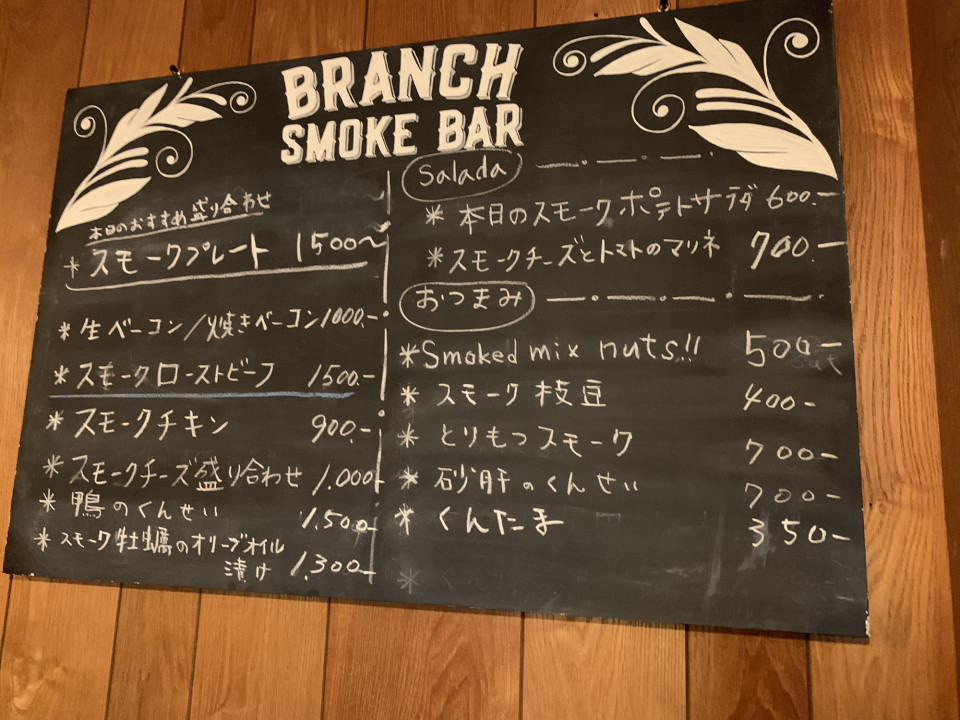 BRANCH
SMOKE BAR
本日のおすすめ盛り合わせ
* スモークプレート 1500〜
* 生ベーコン/焼きベーコン 1000.-
* スモークローストビーフ 1500.-
* スモークチキン 900.-
* スモークチーズ盛り合わせ 1.000-
* 鴨のくんせい 1.500-
* スモーク牡蠣のオリーブオイル
漬け 1.300-
Salada
* 本日のスモークポテトサラダ 600.-
* スモークチーズとトマトのマリネ 700.-
おつまみ
* Smoked mix nuts!! 500-
* スモーク枝豆 400-
* とりもつスモーク 700-
* 砂肝のくんせい 700-
* くんたま 350-
*